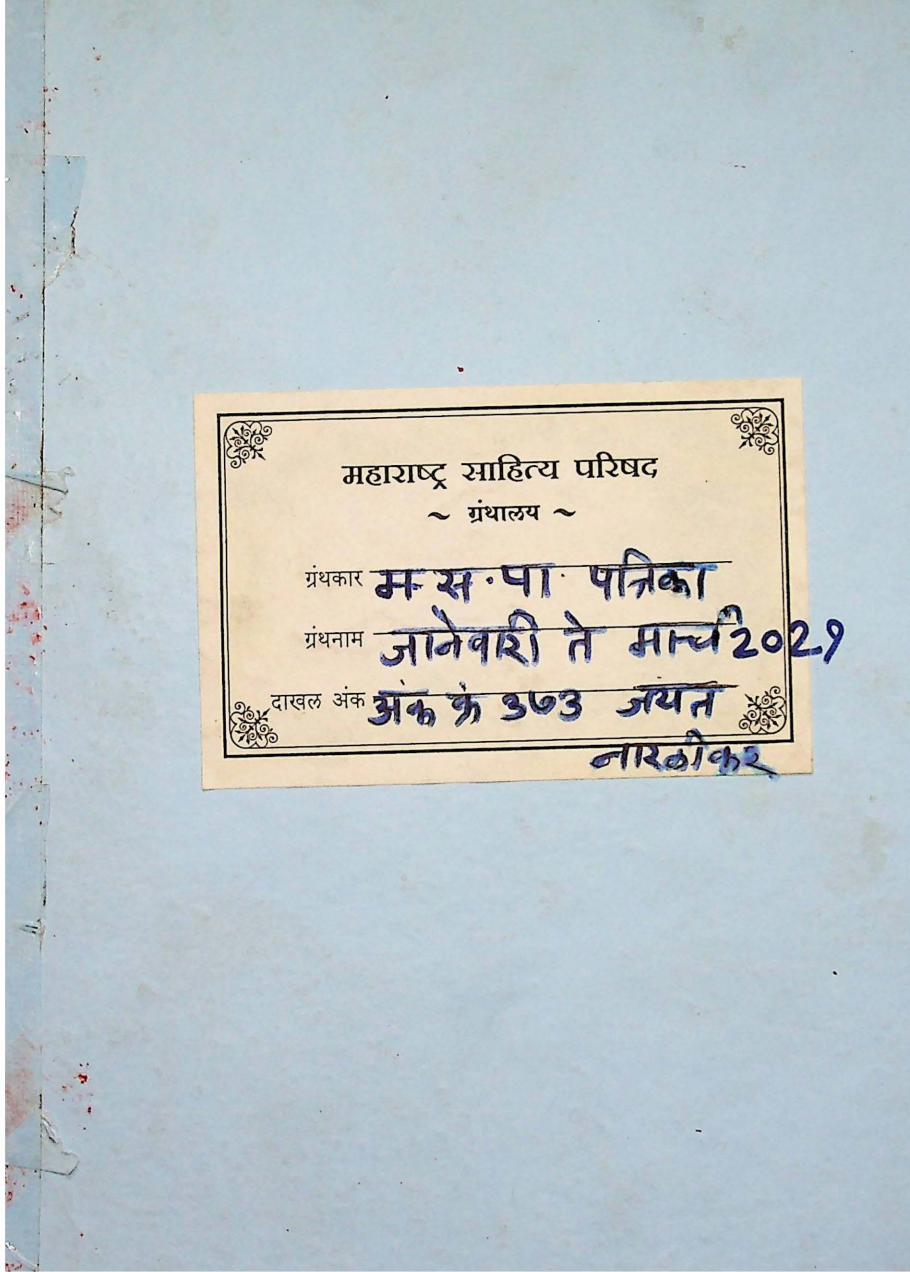 महाराष्ट्र साहित्य परिषद
~ ग्रंथालय ~
ग्रंथकार म. स. पा. पत्रिका
ग्रंथनाम जानेवारी ते मार्च २०२१
दाखल अंक अंक क्रं ३७३ जयंत
नारळीकर